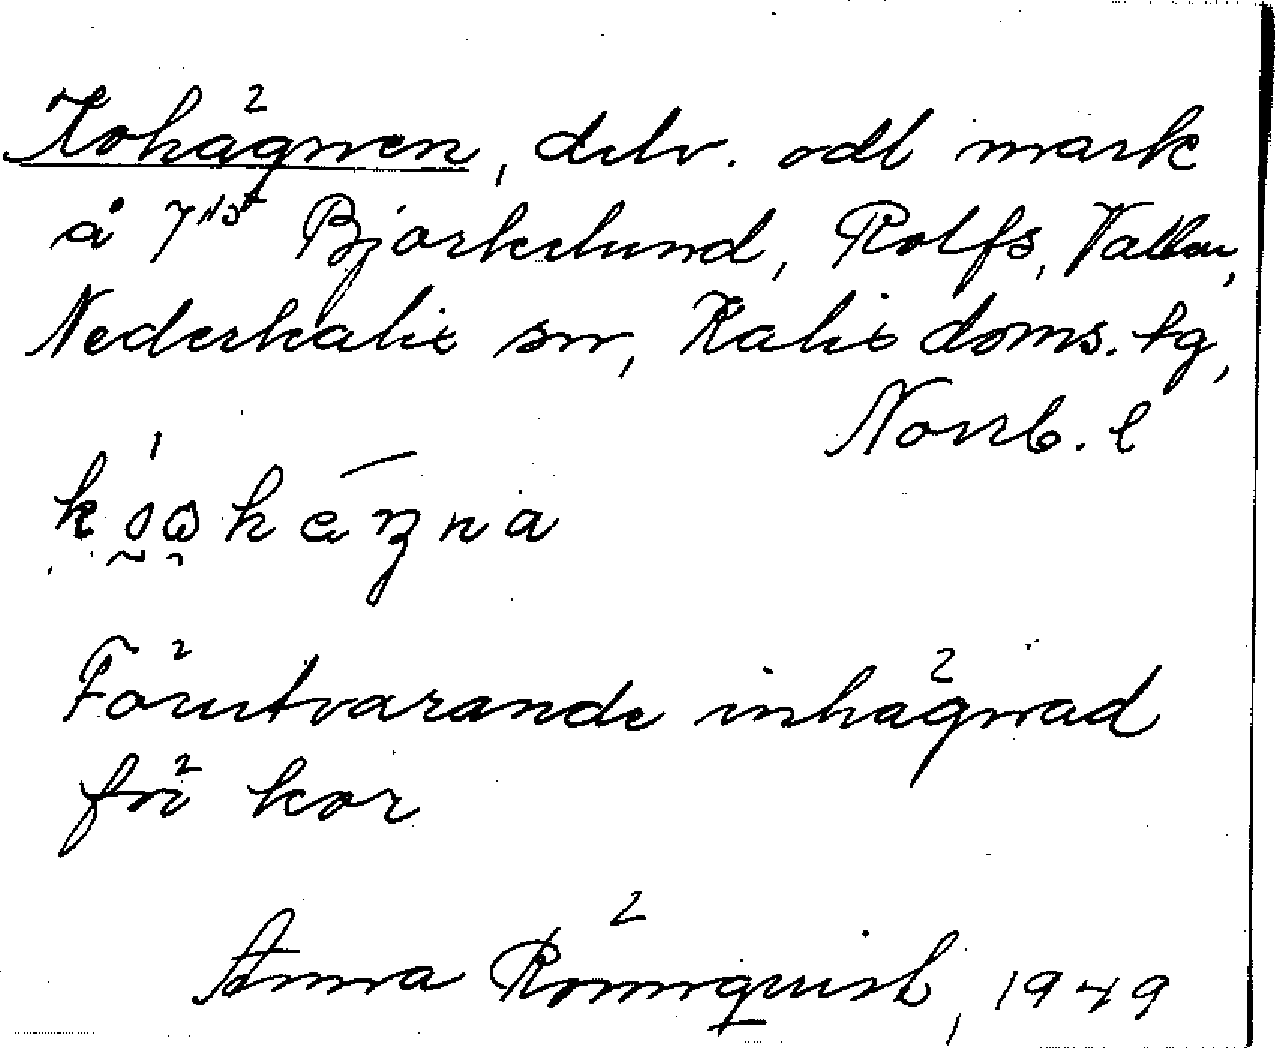 Kohägnen, delv. odl mark
å 7¹⁵ Björkelund, Rolfs, Vallen,
Nederkalix sn, Kalix doms. tg,
Norrb. l
Förutvarande inhägnad
för kor
Anna Rönnquist, 1949